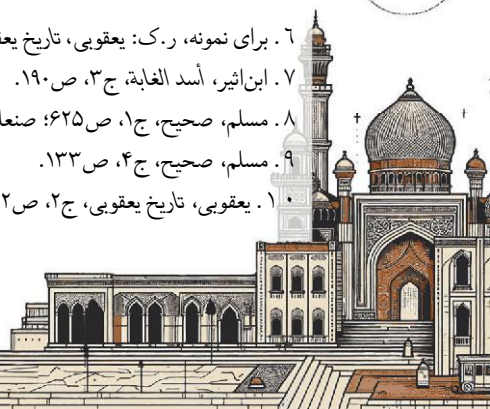 ۶. برای نمونه، ر.ک: یعقوبی، تاریخ
۷. ابن‌اثیر، أسد الغابة، ج۳، ص۱۹۰.
۸. مسلم، صحیح، ج۱، ص۶۲۵؛
۹. مسلم، صحیح، ج۴، ص۱۳۳.
۱۰. یعقوبی، تاریخ یعقوبی، ج۲،